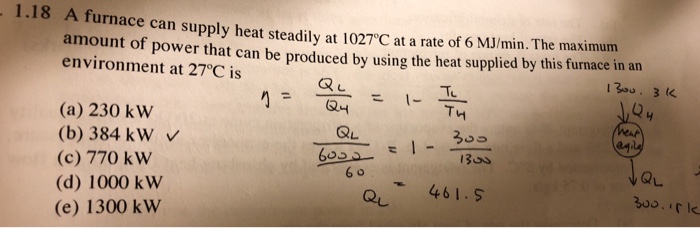 1.18 A furnace can supply heat steadily at 1027°C at a rate of 6 MJ/min. The maximum
amount of power that can be produced by using the heat supplied by this furnace in an
environment at 27°C is
(a) 230 kW
(b) 384 kW ✓
(c) 770 kW
(d) 1000 kW
(e) 1300 kW
η = QL / QH = 1 - TL / TH
QL / (6000 / 60) = 1 - 300 / 1300
QL = 461.5
1300. 3 K
QH
heat
QL
300.15 K